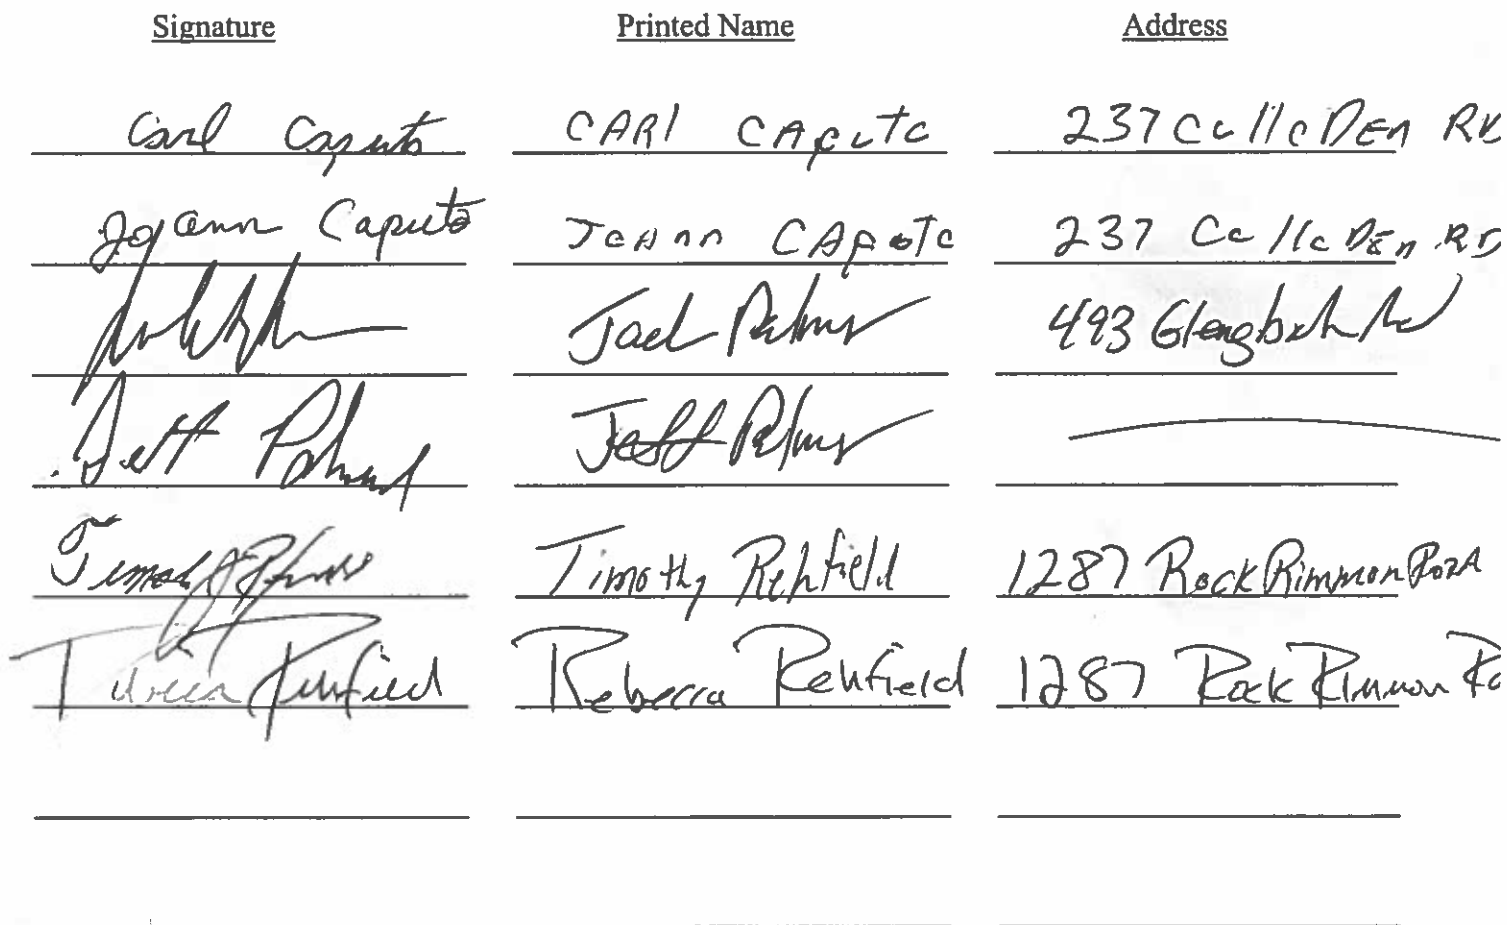 Signature Printed Name Address
Carl Caputo CARl CAputo 237 Collo DEn RD
Joann Caputo JoAnn CAputo 237 Collo DEn RD
Jack Palmer 493
Jeff Palmer
Timothy Rehfield 1287 Rock Rimmon Road
Rebecca Rehfield Rebecca Rehfield 1287 Rock Rimmon Ro